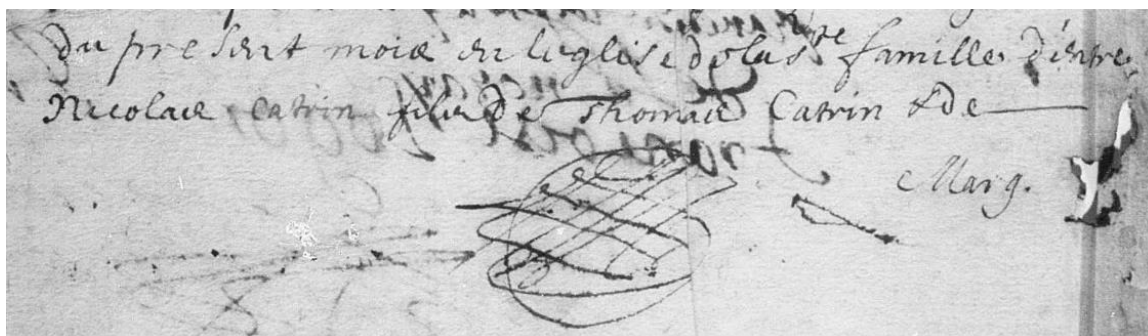 du present mois en leglise de la s^te famille d'entre
Nicolas Catrin fils de Thomas Catrin & de
Marg.